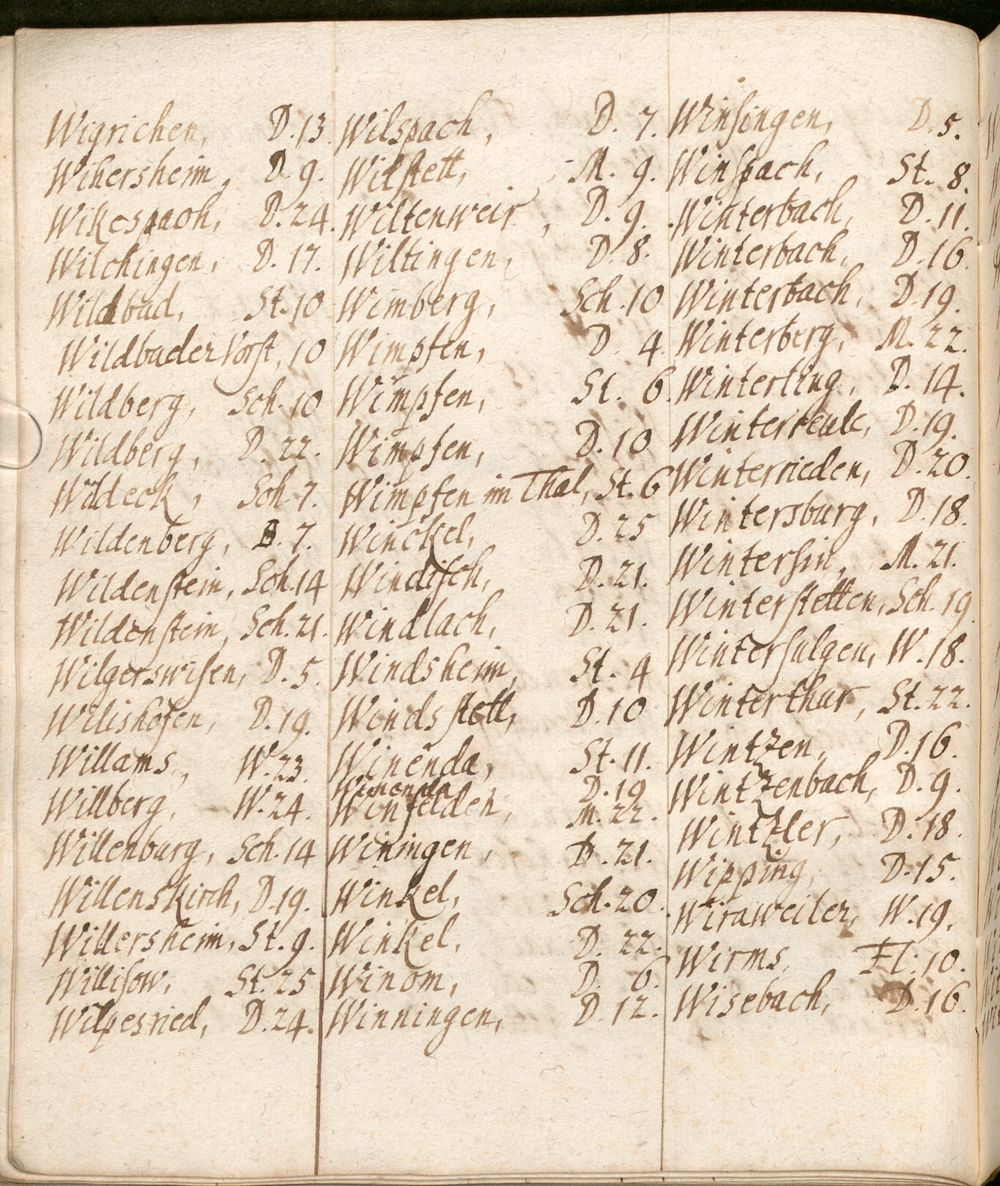 Wigrichen, D. 13
Wihersheim, D. 9.
Wikespach, D. 24.
Wilchingen, D. 17.
Wildbad, St. 10
Wildbader Vorst, 10
Wildberg, Sch. 10
Wildberg, D. 22.
Wildeck, Sch. 7.
Wildenberg, D. 7.
Wildenstein, Sch. 14
Wildenstein, Sch. 21.
Wilgerswisen, D. 5.
Wilishofen, D. 19.
Willams, W. 23.
Willberg, W. 24.
Willenburg, Sch. 14
Willenskirch, D. 19.
Willersheim, St. 9.
Willisow, St. 25
Wilpesried, D. 24.
Wilspach, D. 7.
Wilstett, M. 9.
Wiltenweir, D. 9.
Wiltingen, D. 8.
Wimberg, Sch. 10
Wimpfen, D. 4.
Wimpfen, St. 6.
Wimpfen, D. 10
Wimpfen im Thal, St. 6
Winckel, D. 25
Windisch, D. 21.
Windlach, D. 21.
Windsheim, St. 4
Windsstett, D. 10
Winenda, St. 11.
Winenda D. 19
Winfelden, M. 22.
Winingen, D. 21.
Winkel, Sch. 20.
Winkel, D. 22.
Winom, D. 6.
Winningen, D. 12.
Winsingen, D. 5.
Winspach, St. 8.
Winterbach, D. 11.
Winterbach, D. 16.
Winterbach, D. 19.
Winterberg, M. 22.
Winterling, D. 14.
Winterreute, D. 19.
Winterrieden, D. 20
Wintersburg, D. 18.
Wintersin, M. 21.
Winterstetten, Sch. 19
Wintersulgen, W. 18.
Winterthur, St. 22.
Wintzen, D. 16.
Wintzenbach, D. 9.
Wintzler, D. 18.
Wipping, D. 15.
Wiraweiler, W. 19.
Wirms, Fl. 10.
Wisebach, D. 16.